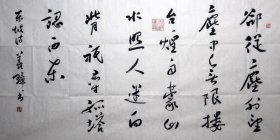 卻從塵外望
塵中無限樓
台煙雨濛山
水照人迷向
背祇尋孤塔
認西東
東坡詩 書